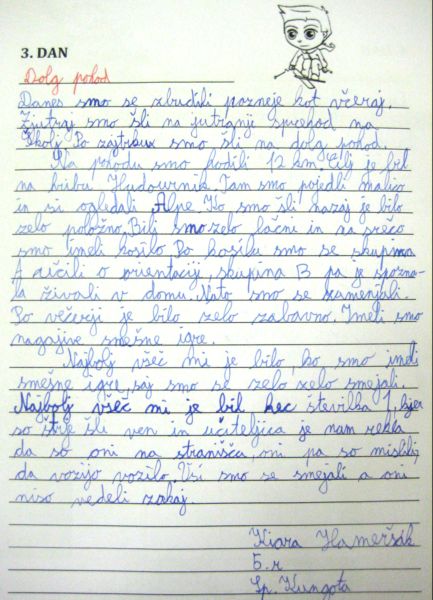 3. DAN
Dolg pohod
Danes smo se zbudili pozneje kot včeraj.
Zjutraj smo šli na jutranji sprehod na
Školj. Po zajtrkux smo šli na dolg pohod.
Na pohodu smo hodili 12 km. Cilj je bil
na hribu Hudournik. Tam smo pojedli malico
in si ogledali Alpe. Ko smo šli nazaj je bilo
zelo položno. Bili smo zelo lačni in na srečo
smo imeli kosilo. Po kosilu smo se skupina
A učili o orientaciji, skupina B pa je spozna-
la živali v domu. Nato smo se zamenjali.
Po večerji je bilo zelo zabavno. Imeli smo
nagajive smešne igre.
Najbolj všeč mi je bilo, ko smo imeli
smešne igre, saj smo se zelo zelo smejali.
Najbolj všeč mi je bil hec številka 1, kjer
so štrje šli ven in učiteljica je nam rekla,
da so oni na stranišča, oni pa so mislili,
da vozijo vozilo. Vsi smo se smejali a oni
niso vedeli zakaj.
Kiara Hameršak
5. r
Sp. Kungota